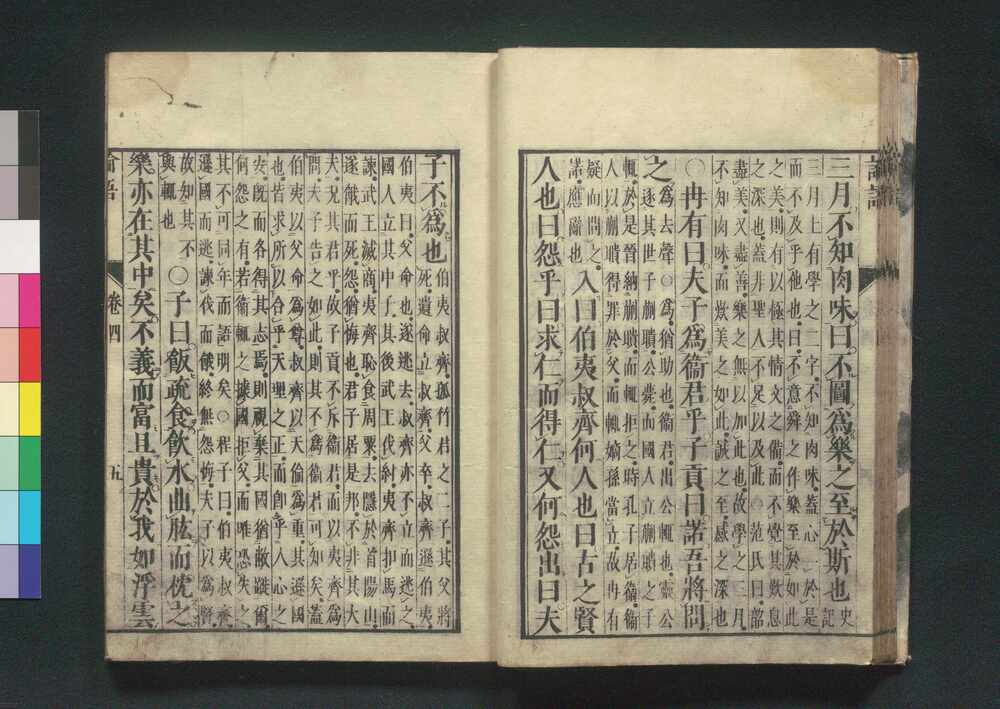 論語
三月不知肉味曰不圖為樂之至於斯也史記
三月上有學之二字不知肉味蓋心一於是
而不及乎他也曰不意舜之作樂至於如此
之美則有以極其情文之備而不覺其歎息
之深也蓋非聖人不足以及此○范氏曰韶
盡美又盡善樂之無以加此也故學之三月
不知肉味而歎美之如此誠之至感之深也
○冉有曰夫子為衞君乎子貢曰諾吾將問
之為去聲○為猶助也衞君出公輒也靈公
逐其世子蒯聵公薨而國人立蒯聵之子
輒於是晉納蒯聵而輒拒之時孔子居衞衞
人以蒯聵得罪於父而輒嫡孫當立故冉有
疑而問之諾應辭也入曰伯夷叔齊何人也曰古之賢
人也曰怨乎曰求仁而得仁又何怨出曰夫
子不為也伯夷叔齊孤竹君之二子其父將
死遺命立叔齊父卒叔齊遜伯夷
伯夷曰父命也遂逃去叔齊亦不立而逃之
國人立其中子其後武王伐紂夷齊扣馬而
諫武王滅商夷齊恥食周粟去隱於首陽山
遂餓而死怨猶悔也君子居是邦不非其大
夫況其君乎故子貢不斥衞君而以夷齊為
問夫子告之如此則其不為衞君可知矣蓋
伯夷以父命為尊叔齊以天倫為重其遜國
也皆求所以合乎天理之正而即乎人心之
安既而各得其志焉則視棄其國猶敝蹝爾
何怨之有若衞輒之據國拒父而唯恐失之
其不可同年而語明矣○程子曰伯夷叔齊
遜國而逃諫伐而餓終無怨悔夫子以為賢
故知其不與輒也○子曰飯疏食飲水曲肱而枕之
樂亦在其中矣不義而富且貴於我如浮雲
論語 卷四 五